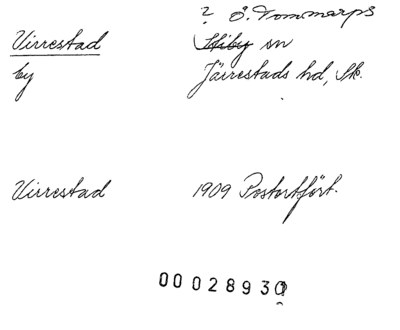 ? Ö. Tommarps
Virrestad Stiby sn
by Järrestads hd, Sk.
Virrestad 1909 Postortfört.
00028930